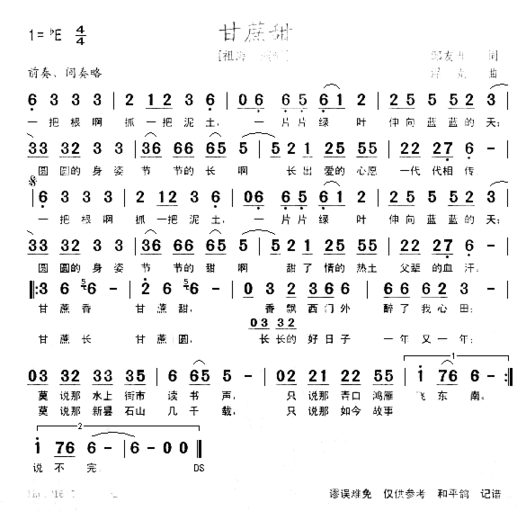 甘蔗甜
1=♭E 4/4
[祖海
友 词
曲
前奏、间奏略
6 3 3 3 | 2 12 3 6 | 06 65 61 | 2 25 52 3 |
一把根啊 抓一把泥土， 一片片绿叶 伸向蓝蓝的天；
33 32 3 3 | 36 66 65 5 | 521 25 55 | 22 27 6 - |
圆圆的身姿 节节的长啊 长出爱的心愿 一代代相传
6 3 3 3 | 2 12 3 6 | 06 65 61 | 2 25 52 3 |
一把根啊 抓一把泥土， 一片片绿叶 伸向蓝蓝的天；
33 32 3 3 | 36 66 65 5 | 521 25 55 | 22 27 6 - |
圆圆的身姿 节节的甜啊 甜了情的热土 父辈的血汗；
甘蔗香 甘蔗甜， 香飘西门外 醉了我心田；
03 32
甘蔗长 甘蔗圆， 长长的好日子 一年又一年；
03 32 33 35 | 6 65 5 - | 02 21 22 55 | 1 76 6 - :|
莫说那水上街市 读书声， 只说那青口鸿雁 飞东南。
莫说那新昙石山 几千载， 只说那如今故事
1 76 6 - | 6 - 0 0 |
说不完 DS
谬误难免 仅供参考 和平鸽 记谱